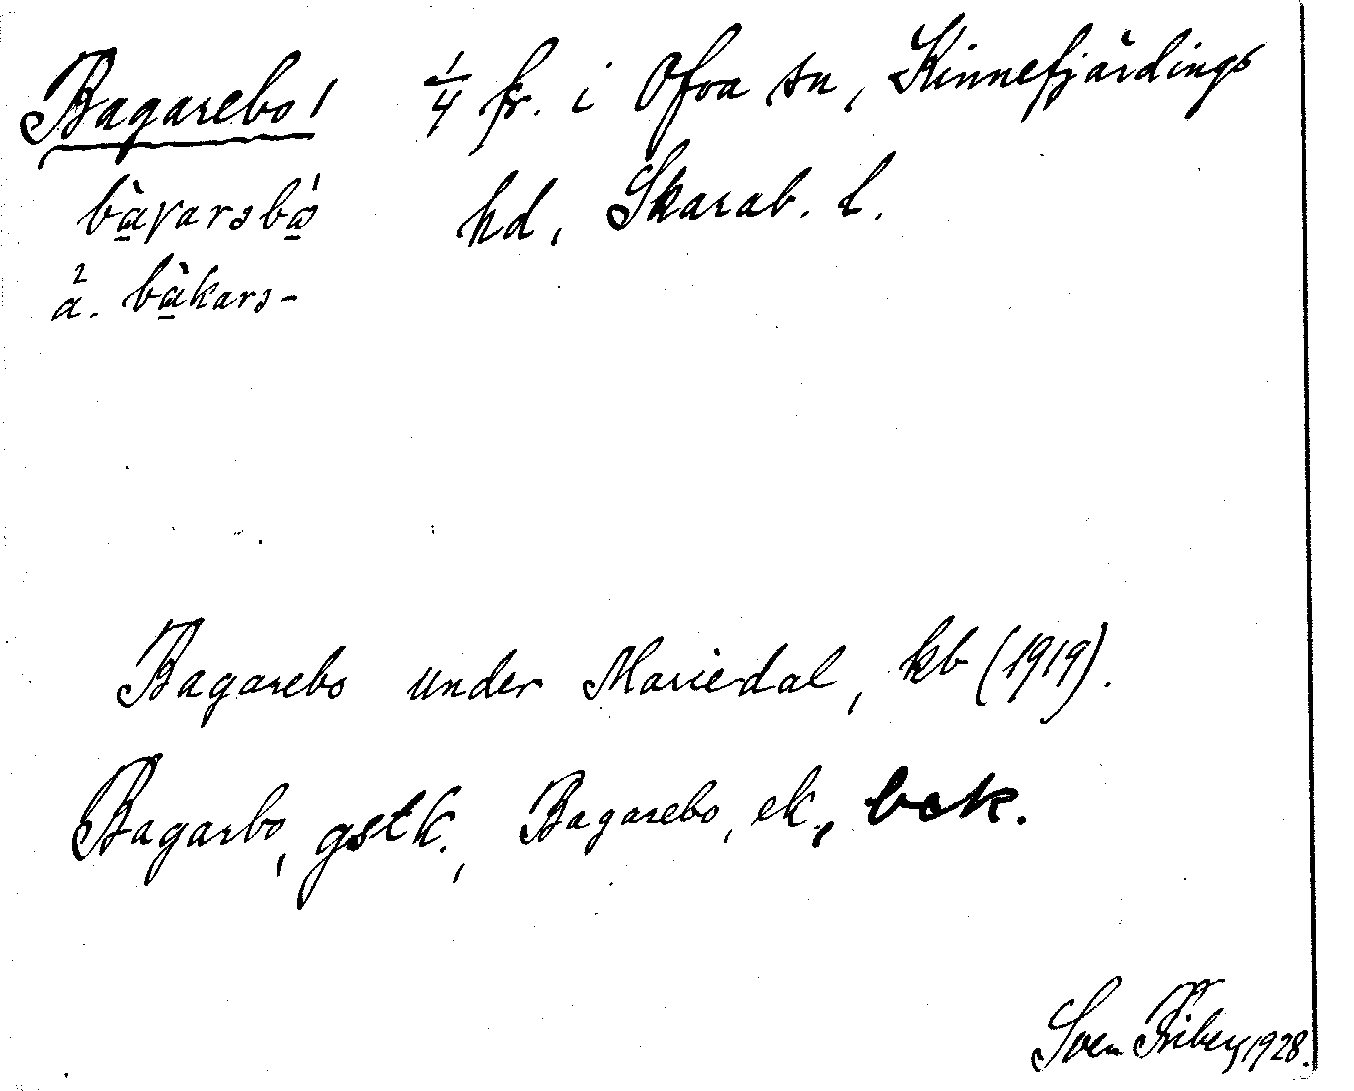 Bagarebo 1 1/4 fr. i Ofva sn, Kinnefjärdings
hd, Skarab. l.
bàgarəbó
2 ä. bàkarə-
Bagarebo under Mariedal, kb (1919).
Bagarbo, gstk., Bagarebo, ek., bek.
Sven Friberg 1928.